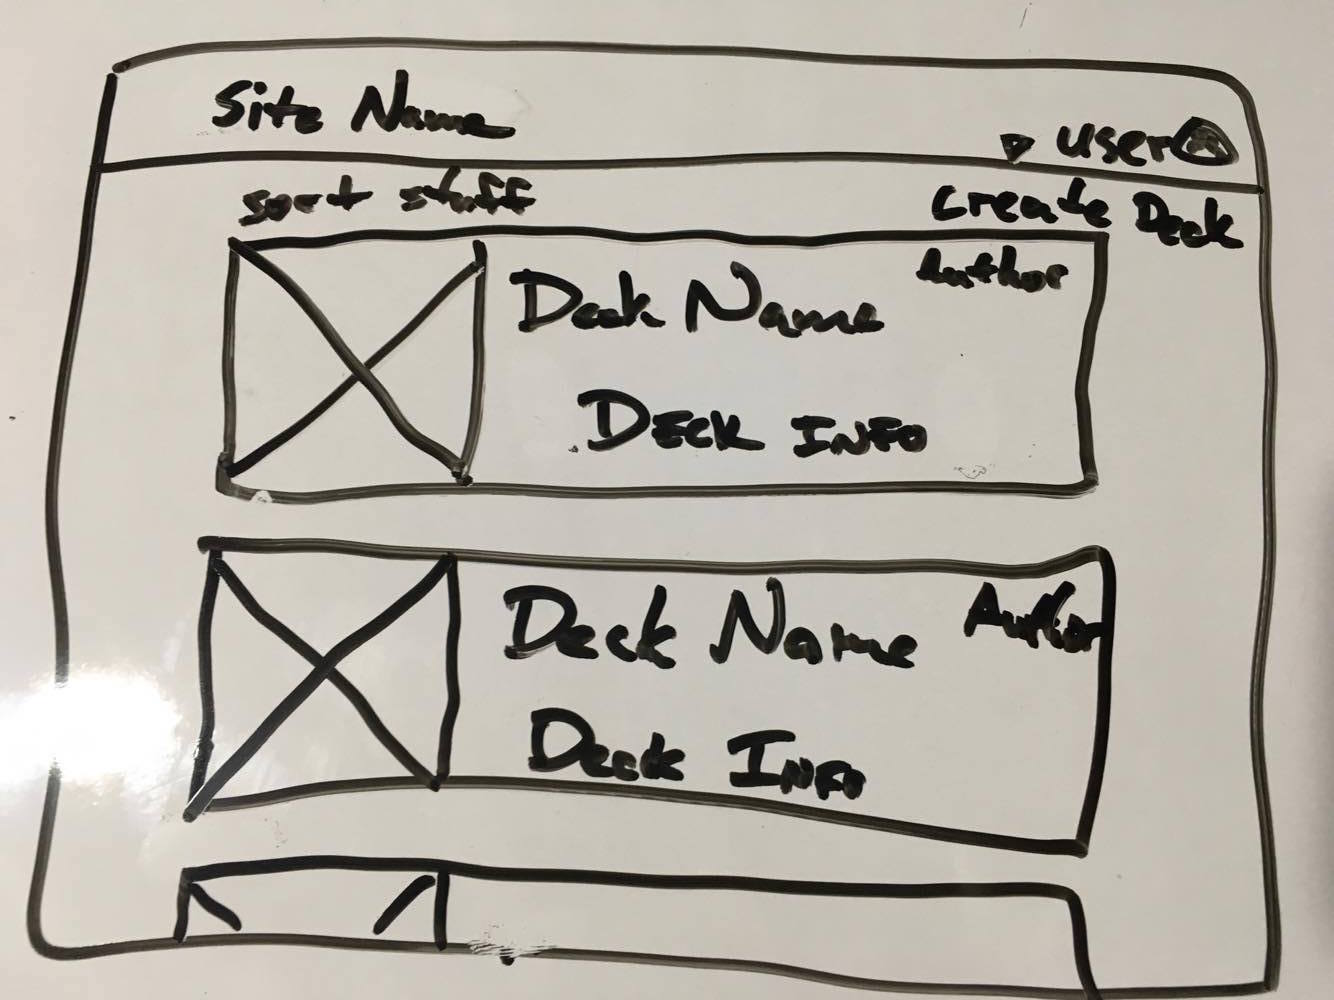 Site Name
user
sort stuff
Create Deck
Deck Name
Author
DECK INFO
Deck Name
Author
Deck INFO